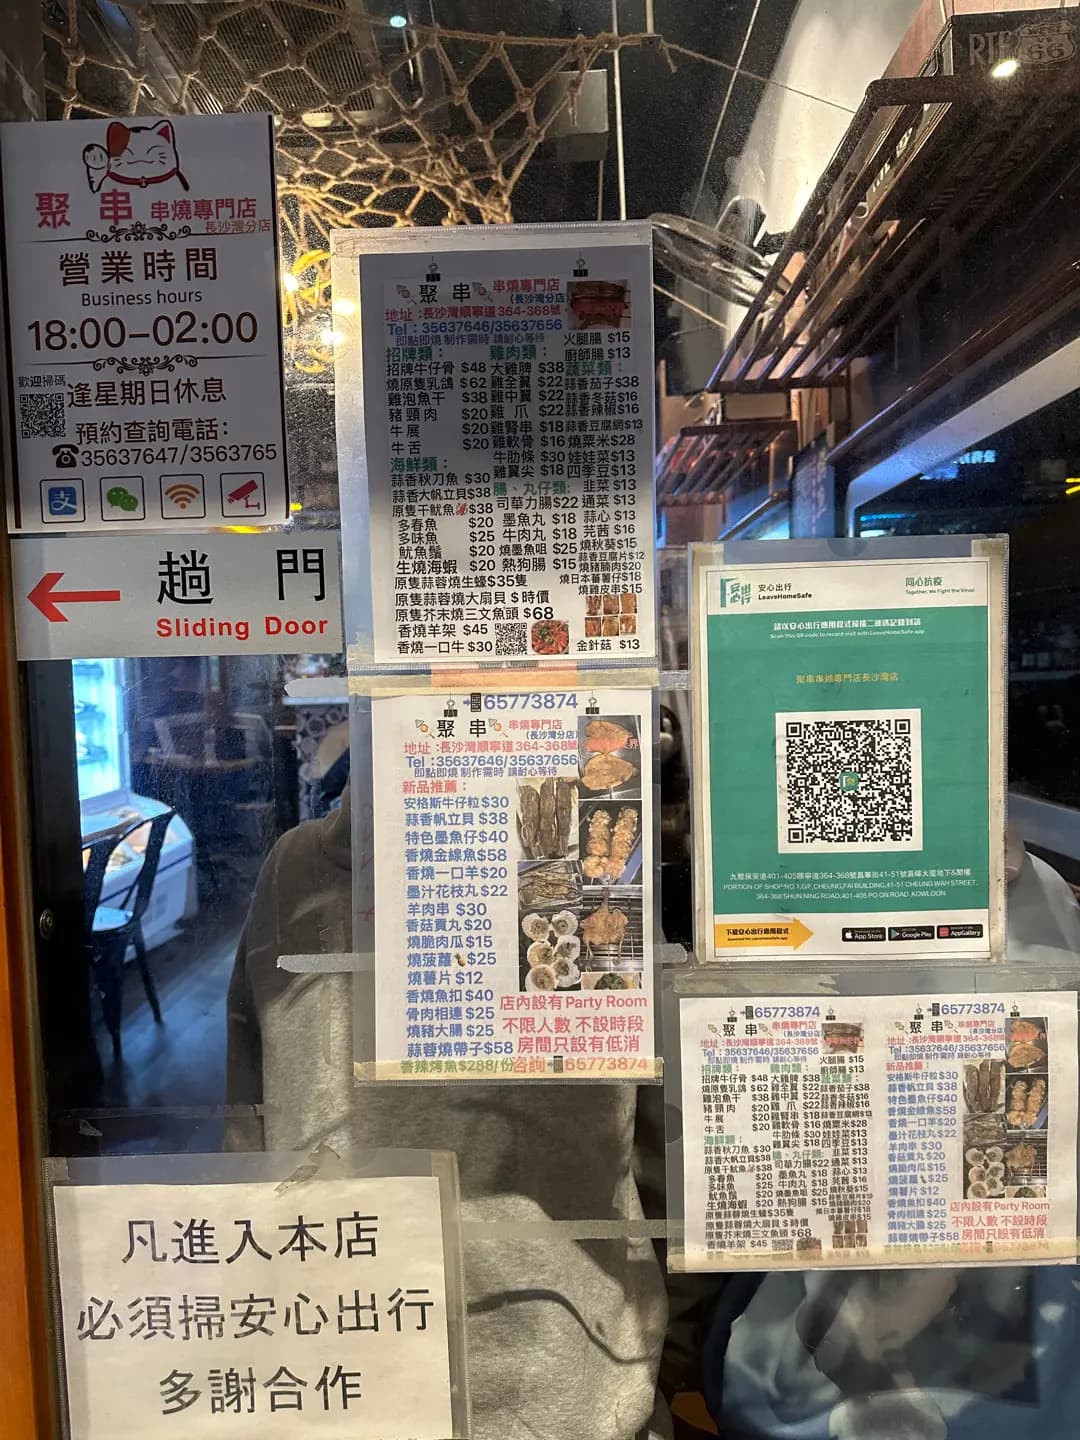 聚 串 串燒專門店
長沙灣分店
營業時間
Business hours
18:00-02:00
歡迎掃碼
逢星期日休息
預約查詢電話:
☎35637647/3563765
趟 門
Sliding Door
聚 串 串燒專門店
(長沙灣分店
地址:長沙灣順寧道364-368號
Tel : 35637646/35637656
即點即燒 制作需時 請耐心等待
招牌類:
招牌牛仔骨 $48
燒原隻乳鴿 $62
雞泡魚干 $38
豬頸肉 $20
牛展 $20
牛舌 $20
海鮮類:
蒜香秋刀魚 $30
蒜香大帆立貝$38
原隻干魷魚 $38
多春魚 $20
多味魚 $25
魷魚鬚 $20
生燒海蝦 $20
原隻蒜蓉燒生蠔$35隻
原隻蒜蓉燒大扇貝 $時價
原隻芥末燒三文魚頭 $68
香燒羊架 $45
香燒一口牛 $30
雞肉類:
大雞髀 $38
雞全翼 $22
雞中翼 $22
雞爪 $22
雞腎串 $18
雞軟骨 $16
牛肋條 $30
雞翼尖 $18
腸、丸仔類:
司華力腸$22
墨魚丸 $18
牛肉丸 $18
燒墨魚咀 $25
熱狗腸 $15
火腿腸 $15
廚師腸 $13
蔬菜類:
蒜香茄子$38
蒜香冬菇$16
蒜香辣椒$16
蒜香豆腐網$13
燒粟米$28
娃娃菜$13
四季豆$13
韮菜 $13
通菜 $13
蒜心 $13
芫茜 $16
燒秋葵$15
蒜香豆腐片$12
燒豬腩肉$20
燒日本蕃薯仔$18
燒雞皮串$15
金針菇 $13
65773874
聚 串 串燒專門店
(長沙灣分店)
地址:長沙灣順寧道364-368號
Tel :35637646/35637656
即點即燒 制作需時 請耐心等待
新品推薦:
安格斯牛仔粒$30
蒜香帆立貝 $38
特色墨魚仔$40
香燒金線魚$58
香燒一口羊$20
墨汁花枝丸$22
羊肉串 $30
香菇貢丸$20
燒脆肉瓜$15
燒菠蘿 $25
燒薯片$12
香燒魚扣$40
骨肉相連$25
燒豬大腸$25
蒜蓉燒帶子$58
香辣烤魚$288/份
店內設有Party Room
不限人數 不設時段
房間只設有低消
咨詢 65773874
安心出行
LeaveHomeSafe
同心抗疫
Together, We Fight the Virus!
請以安心出行應用程式掃描二維碼記錄到訪
Scan this QR code to record visit with LeaveHomeSafe app
聚串串燒專門店長沙灣店
九龍保安道401-405順寧道364-368號昌華街41-51號昌暉大廈地下&閣樓
PORTION OF SHOP NO 1,G/F, CHEUNG FAI BUILDING,41-51 CHEUNG WAH STREET,
364-368 SHUN NING ROAD,401-405 PO ON ROAD ,KOWLOON
下載安心出行應用程式
Download the LeaveHomeSafe app
App Store
Google Play
AppGallery
65773874
聚 串 串燒專門店
(長沙灣分店
地址:長沙灣順寧道364-368號
Tel :35637646/35637656
即點即燒 制作需時 請耐心等待
招牌類:
招牌牛仔骨 $48
燒原隻乳鴿 $62
雞泡魚干 $38
豬頸肉 $20
牛展 $20
牛舌 $20
海鮮類:
蒜香秋刀魚 $30
蒜香大帆立貝$38
原隻干魷魚 $38
多春魚 $20
多味魚 $25
魷魚鬚 $20
生燒海蝦 $20
原隻蒜蓉燒生蠔$35隻
原隻蒜蓉燒大扇貝 $時價
原隻芥末燒三文魚頭 $68
香燒羊架 $45
雞肉類:
大雞髀 $38
雞全翼 $22
雞中翼 $22
雞爪 $22
雞腎串 $18
雞軟骨 $16
牛肋條 $30
雞翼尖 $18
腸、丸仔類:
司華力腸$22
墨魚丸 $18
牛肉丸 $18
燒墨魚咀 $25
熱狗腸 $15
火腿腸 $15
廚師腸 $13
蔬菜類:
蒜香茄子$38
蒜香冬菇$16
蒜香辣椒$16
蒜香豆腐網$13
燒粟米$28
娃娃菜$13
四季豆$13
韮菜 $13
通菜 $13
蒜心 $13
芫茜 $16
燒秋葵$15
65773874
聚 串 串燒專門店
(長沙灣分店)
地址:長沙灣順寧道364-368號
Tel :35637646/35637656
即點即燒 制作需時 請耐心等待
新品推薦:
安格斯牛仔粒$30
蒜香帆立貝 $38
特色墨魚仔$40
香燒金線魚$58
香燒一口羊$20
墨汁花枝丸$22
羊肉串 $30
香菇貢丸$20
燒脆肉瓜$15
燒菠蘿 $25
燒薯片$12
香燒魚扣$40
骨肉相連$25
燒豬大腸$25
蒜蓉燒帶子$58
店內設有Party Room
不限人數 不設時段
房間只設有低消
凡進入本店
必須掃安心出行
多謝合作
WEST
66